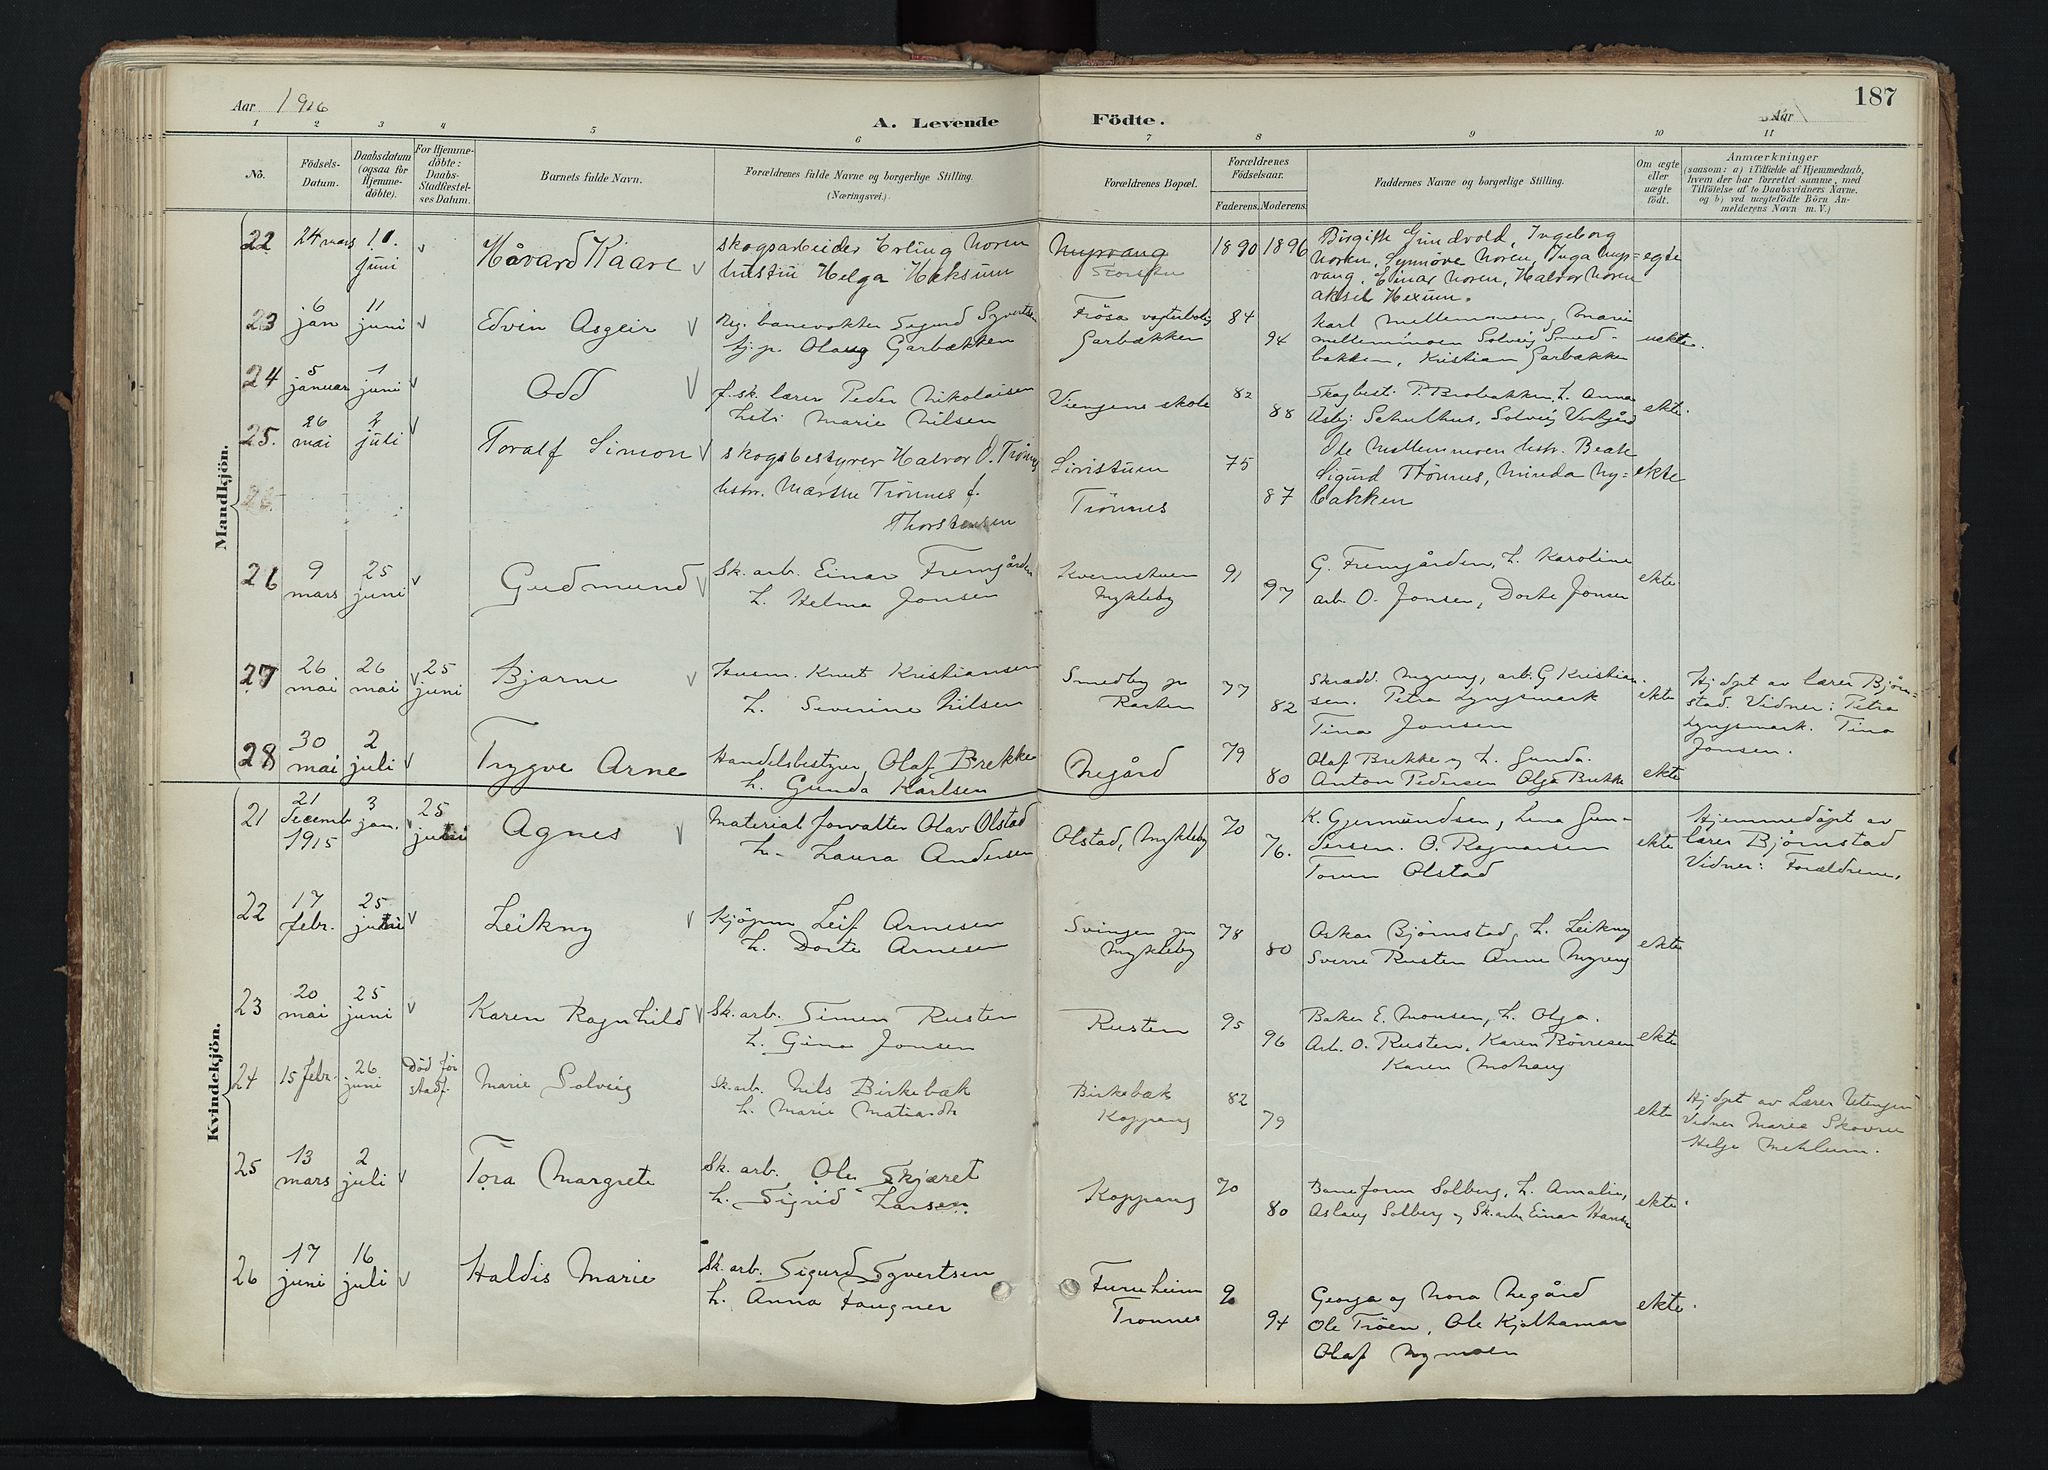 Aar 1916
A. Levende Födte.
187
Aar
1 2 3 4 5 6 7 8 9 10 11
No.
Födsels-Datum.
Daabsdatum (ogsaa for Hjemme-döbte).
For Hjemme-döbte: Daabs-Stadfæstel-ses Datum.
Barnets fulde Navn.
Forældrenes fulde Navne og borgerlige Stilling. (Næringsvei.)
Forældrenes Bopæl.
Forældrenes Födselsaar.
Faderens. Moderens.
Faddernes Navne og borgerlige Stilling.
Om ægte eller uægte födt.
Anmærkninger
(saasom: a) i Tilfælde af Hjemmedaab,
hvem der har forrettet samme, med
Tilföielse af to Daabsvidners Navne,
og b) ved uægtefödte Börn An-
melderens Navn m. V.)
Mandkjön.
22 24 mars 11. juni Håvard Kaare
skogsarbeider Erling Noren
hustru Helga Heksum
Nyvang
1890 1896
Birgitte Gundvold, Ingeborg
Noren, Synnöve Noren, Inga Nyr=
vang, Einar Noren, Halvor Noren
Aksel Hexum.
egte
23 6 jan 11 juni Edvin Asgeir
banevokter Sigurd Syvertsen
tj. p. Olaug Garbækken
Frösa vogterbolig
Garbækken
84 94
Karl Mellemmoen, Marie
Mellemmoen Solveig Smed-
bakken, Kristian Garbækken
uekte.
24 5 januar 1 juni Odd
f. sk. lærer Peder Nikolaisen
Marie Nilsen
Viengens skole
82 88
Skogbest. P. Brobakken, h. Anna
Asbj. Schulhus, Solveig
ekte.
25. 26 mai 2 juli Toralf Simon
skogsbestyrer Halvor O. Trönnes
hstr. Marthe Trönnes f.
Thorstensen
Trönnes
75 87
Ole Mellemmoen hstr. Beate
Sigurd Thönnes, Minda Ny=
bakken
ekte
26.
26 9 mars 25 juni Gudmund
Sk. arb. Einar Fremgården
h. Helma Jonsen
Kvernstuen
Mykleby
91 97
G. Fremgården, h. Karoline
arb. O. Jonsen, Dorte Jonsen
ekte
27 26 mai 26 mai 25 juni Bjarne
Husm. Knut Kristiansen
h. Severine Nilsen
Smedby pr
Rasten
77 82
Skrædd. Myreng, arb. G Kristian-
sen. Petra Lyngsmark
Tina Jonsen
ekte
Hjdøpt av lærer Bjørn=
stad. Vidner: Petra
Lyngsmark. Tina
Jonsen.
28 30 mai 2 juli Trygve Arne
Handelsbestyrer Olaf Brekke
h. Gunda Karlsen
Negård
79 80
Olaf Brekke og h. Gunda.
Anton Pedersen Olga Brekke
ekte
Kvindekjön.
21 21 decemb 1915 3 jan. 25 juni Agnes
Materialforvalter Olav Olstad
h. Laura Andersen
Olstad, Mykleby
70 76.
K. Gjermundsen, Lina Gun-
dersen. O. Ragnarsen
Olstad
ekte
Hjemmedöpt av
lærer Bjørnstad
Vidner: Forældrene.
22 17 febr. 25 juni Leikny
Kjöpm Leif Arnesen
h. Dorte Arnesen
Svingen pr
Mykleby
78 80
Askar Bjørnstad, h. Leikny
Sverre Rusten Anne Myreng
ekte
23 20 mai 25 juni Karen Ragnhild
Sk. arb. Simen Rusten
h. Gina Jonsen
Rusten
95 96
Baker E. Monsen, h. Olga.
Arb. O. Rusten, Karen Börresen
Karen Mohaug
ekte
24 15 febr. 26 juni Död för stadf. Marie Solveig
Sk. arb. Nils Birkebæk
h. Marie
Birkebæk
Koppang
82 79
ekte
Hjdöpt av Lærer Utengen
Vidner Marie Skovru
Helge Mehlum.
25 13 mars 2 juli Tora Margrete
Sk. arb. Ole Skjæret
h. Sigrid Larsen
Koppang
70 80
Baneform Solberg, h. Amalie,
Aslaug Solberg og Sk. arb. Einar Hansen
ekte.
26 17 juni 16 juli Haldis Marie
Sk. arb. Sigurd Syvertsen
h. Anna Haugner
Furuheim
Trønnes
94
Georga og Nora Negård
Ole Tröen, Ole Kjolhamar
Olaf Nymoen
ekte.